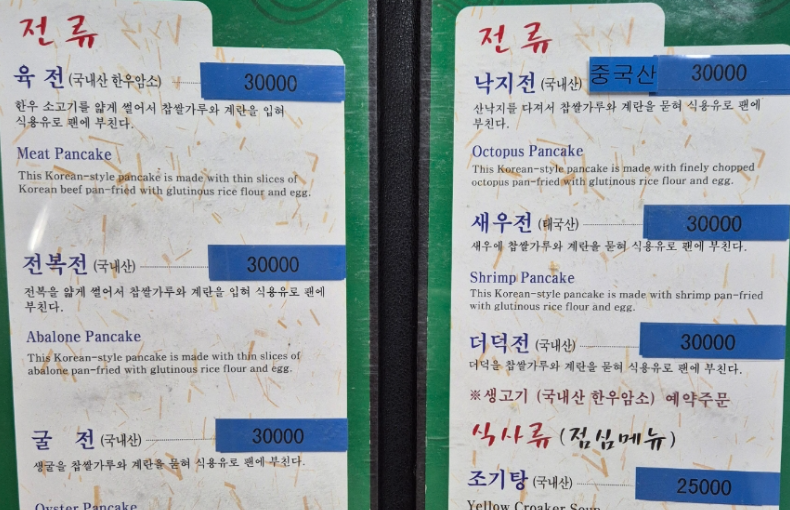 전 류
육 전 (국내산 한우암소) 30000
한우 소고기를 얇게 썰어서 찹쌀가루와 계란을 입혀
식용유로 팬에 부친다.
Meat Pancake
This Korean-style pancake is made with thin slices of
Korean beef pan-fried with glutinous rice flour and egg.
전복전 (국내산) 30000
전복을 얇게 썰어서 찹쌀가루와 계란을 입혀 식용유로 팬에
부친다.
Abalone Pancake
This Korean-style pancake is made with thin slices of
abalone pan-fried with glutinous rice flour and egg.
굴 전 (국내산) 30000
생굴을 찹쌀가루와 계란을 묻혀 식용유로 팬에 부친다.
Oyster Pancake
전 류
낙지전 (국내산) 중국산 30000
산낙지를 다져서 찹쌀가루와 계란을 묻혀 식용유로 팬에
부친다.
Octopus Pancake
This Korean-style pancake is made with finely chopped
octopus pan-fried with glutinous rice flour and egg.
새우전 (태국산) 30000
새우에 찹쌀가루와 계란을 묻혀 식용유로 팬에 부친다.
Shrimp Pancake
This Korean-style pancake is made with shrimp pan-fried
with glutinous rice flour and egg.
더덕전 (국내산) 30000
더덕을 찹쌀가루와 계란을 묻혀 식용유로 팬에 부친다.
※생고기 (국내산 한우암소) 예약주문
식사류 (점심메뉴)
조기탕 (국내산) 25000
Yellow Croaker Soup